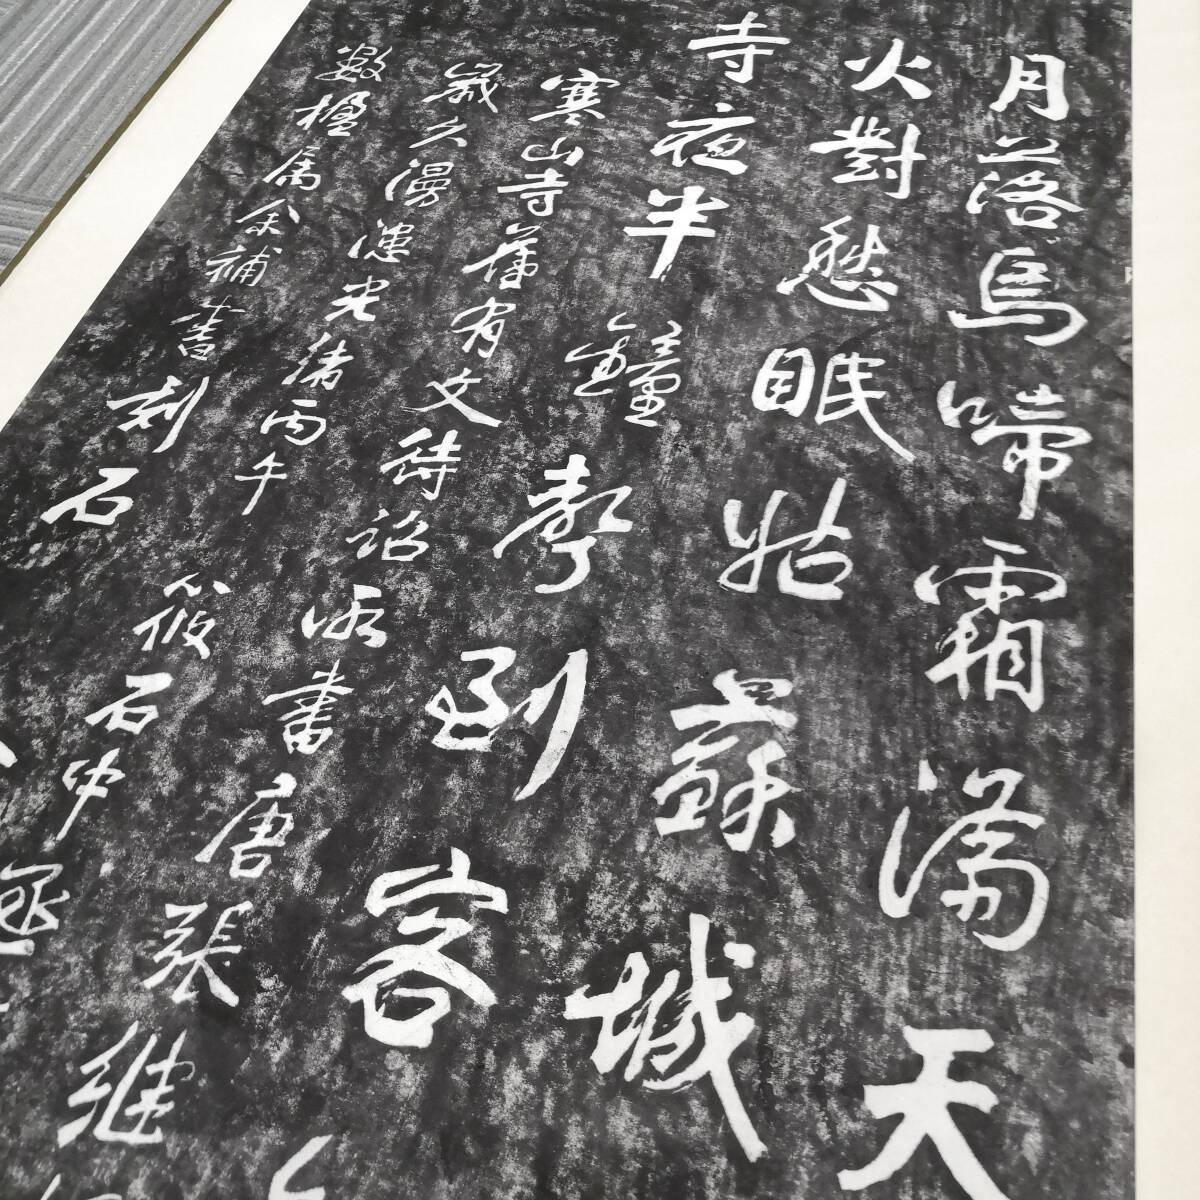 月落烏啼霜滿天
火對愁眠姑蘇城
寺夜半鐘聲到客
寒山寺舊有文待詔所書唐張継
歲久漫漶光緒丙午筱石中丞
數楹屬余補書刻石